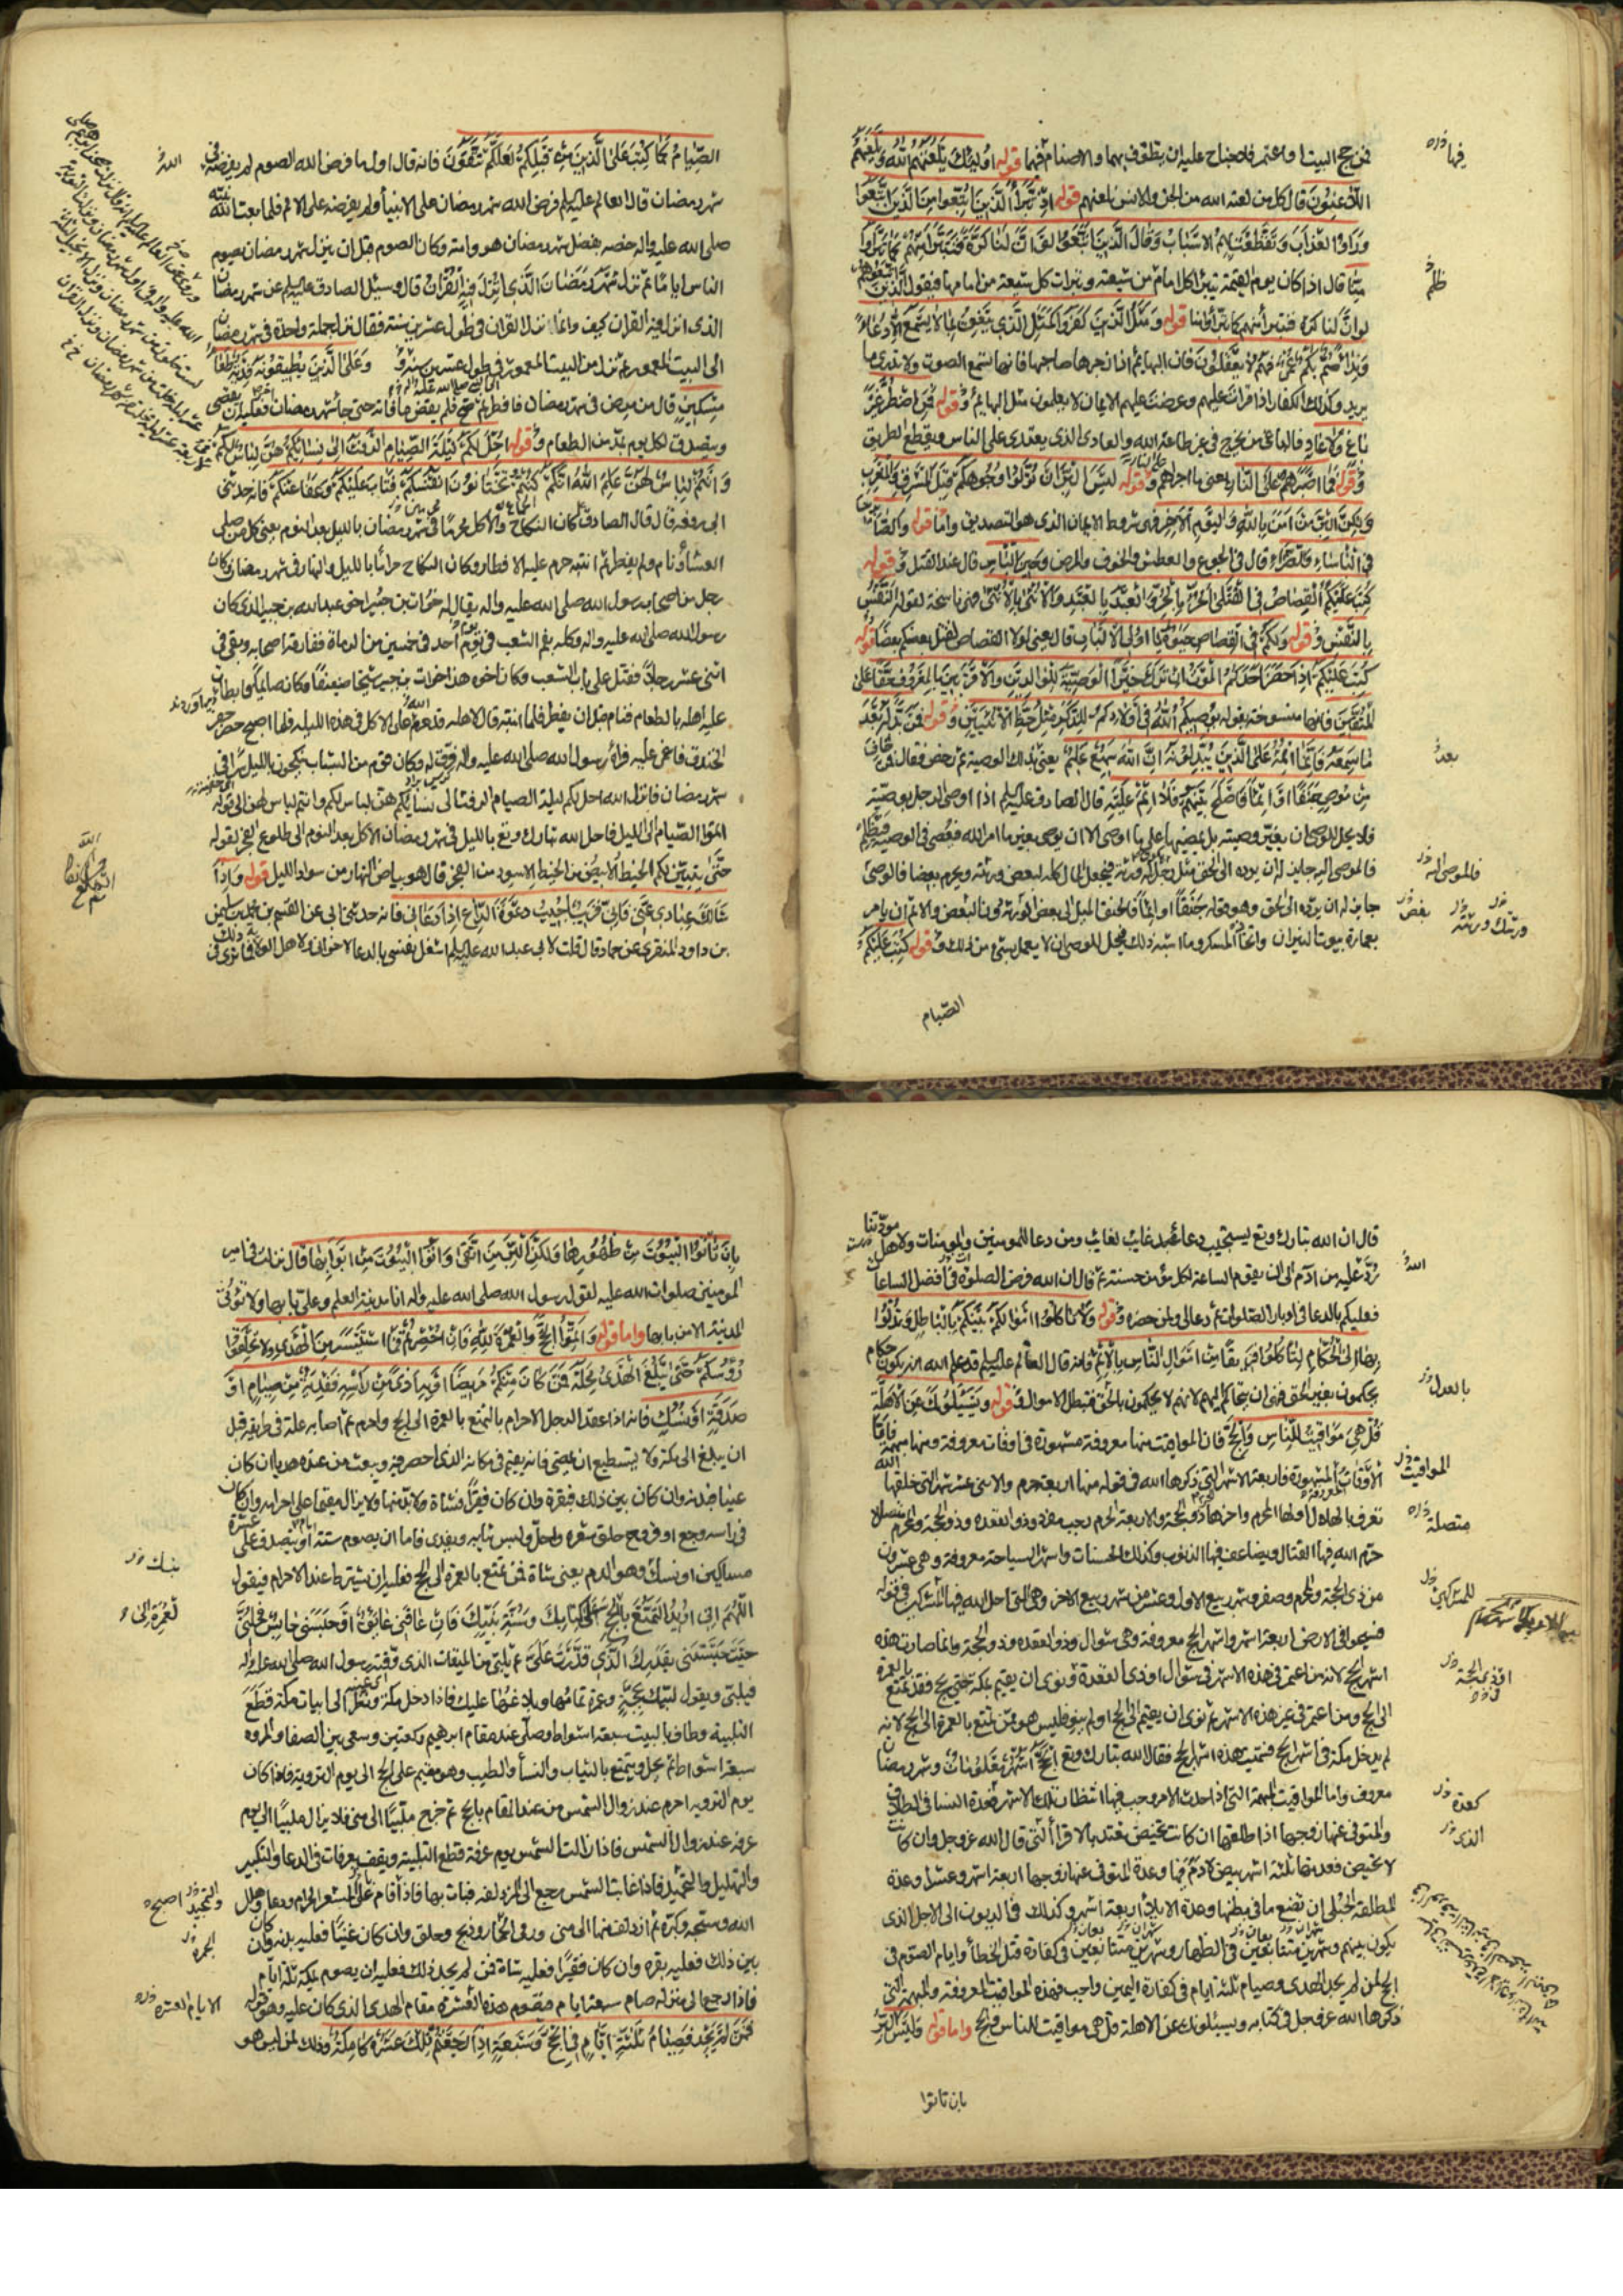 فمن حج البيت او اعتمر فلا جناح عليه ان يطوف بهما والاصنام فيهما قوله اولئك يلعنهم الله ويلعنهم
اللاعنون قال كل من لعنه الله من الجن والانس يلعنهم قوله اذ تبرأ الذين اتبعوا من الذين اتبعوا
وراوا العذاب وتقطعت بهم الاسباب وقال الذين اتبعوا لو ان لنا كرة فنتبرأ منهم كما تبرأوا
منا قال اذا كان يوم القيمة تبرأ كل امام من شيعته وتبرات كل شيعة من امامها فيقول الذين اتبعوا
لو ان لنا كرة فنتبرأ منهم كما تبرأوا منا قوله ومثل الذين كفروا كمثل الذي ينعق بما لا يسمع الا دعاء
ونداء صم بكم عمي فهم لا يعقلون فان البهايم اذا زجرها صاحبها فانها تسمع الصوت ولا تدري ما
يريد وكذلك الكفار اذا قرات عليهم وعرضت عليهم الايمان لا يعلمون مثل البهايم وقوله فمن اضطر غير
باغ ولا عاد فالباغي من يخرج في غير طاعة الله والعادي الذي يعتدي على الناس ويقطع الطريق
وقوله فما اصبرهم على النار يعني ما اجراهم وقوله ليس البر ان تولوا وجوهكم قبل المشرق والمغرب
ولكن البر من آمن بالله واليوم الاخر فهي شروط الايمان الذي هو التصديق واما قوله والصابرين
في الباساء والضراء قال في الجوع والعطش والخوف والمرض وحين الباس قال عند القتل وقوله
كتب عليكم القصاص في القتلى الحر بالحر والعبد بالعبد والانثى بالانثى فهي ناسخة لقوله النفس
بالنفس وقوله ولكم في القصاص حيوة يا اولي الالباب قال يعني لولا القصاص لقتل بعضكم بعضا قوله
كتب عليكم اذا حضر احدكم الموت ان ترك خيرا الوصية للوالدين والاقربين بالمعروف حقا على
المتقين فانها منسوخة بقوله يوصيكم الله في اولادكم للذكر مثل حظ الانثيين وقوله فمن بدله بعد
ما سمعه فانما اثمه على الذين يبدلونه ان الله سميع عليم يعني بذلك الوصية ثم رخص فقال فمن خاف
من موص جنفا او اثما فاصلح بينهم فلا اثم عليه قال الصادق عليه السلم اذا اوصى الرجل بوصية
فلا يحل للوصي ان يغير وصيته بل يمضيها على ما اوصى الا ان يوصي بغير ما امر الله فيعصي في الوصية ويظلم
جايز له ان يرده الى الحق وهو قوله جنفا او اثما فالجنف الميل الى بعض الورثة دون البعض والاثم ان يامر
بعمارة بيوت النيران واتخاذ المسكر وما اشبه ذلك فيحل للوصي ان لا يعمل بشيء من ذلك وقوله كتب عليكم
الصيام
فيها
ظلم
بعد
فالموصى اليه
الصيام كما كتب على الذين من قبلكم لعلكم تتقون فانه قال اول ما فرض الله الصوم لم يفرضه في
شهر رمضان قال العالم عليه السلم فرض الله شهر رمضان على الانبياء ولم يفرضه على الامم فلما بعث الله نبيه
صلى الله عليه واله خصه بفضل شهر رمضان هو وامته وكان الصوم قبل ان ينزل شهر رمضان يصوم
الناس اياما ثم نزل شهر رمضان الذي انزل فيه القرآن قال وسئل الصادق عليه السلم عن شهر رمضان
الذي انزل فيه القران كيف وانما نزل القران في طول عشرين سنة فقال نزل جملة واحدة في شهر رمضان
الى البيت المعمور ثم نزل من البيت المعمور في طول عشرين سنة وعلى الذين يطيقونه فدية طعام
مسكين قال من مرض في شهر رمضان فافطر ثم صح فلم يقض ما فاته حتى جاء شهر رمضان فعليه ان يقضي
ويتصدق لكل يوم بمد من الطعام وقوله احل لكم ليلة الصيام الرفث الى نسائكم هن لباس لكم
وانتم لباس لهن علم الله انكم كنتم تختانون انفسكم فتاب عليكم وعفا عنكم فانه حدثني
ابي مرفوعا قال قال الصادق كان النكاح والاكل محرما في شهر رمضان بالليل بعد النوم يعني كل من صلى
العشاء ونام ولم يفطر ثم انتبه حرم عليه الافطار وكان النكاح حراما بالليل والنهار في شهر رمضان وكان
رجل من اصحاب رسول الله صلى الله عليه واله يقال له خوات بن جبير اخي عبد الله بن جبير الذي كان
رسول الله صلى الله عليه واله وكله بفم الشعب في يوم احد في خمسين من الرماة ففارقه اصحابه وبقي في
اثني عشر رجلا فقتل على باب الشعب وكان اخوه هذا خوات بن جبير شيخا ضعيفا وكان صائما فابطات
عليه اهله بالطعام فنام قبل ان يفطر فلما انتبه قال لاهله قد حرم الله علي الاكل في هذه الليلة فلما اصبح حضر حفر
الخندق فاغمي عليه فراه رسول الله صلى الله عليه واله فرق له وكان قوم من الشباب ينكحون بالليل سرا في
شهر رمضان فانزل الله احل لكم ليلة الصيام الرفث الى نسائكم هن لباس لكم وانتم لباس لهن الى قوله
اتموا الصيام الى الليل فاحل الله تبارك وتع بالليل في شهر رمضان الاكل بعد النوم الى طلوع الفجر لقوله
حتى يتبين لكم الخيط الابيض من الخيط الاسود من الفجر قال هو بياض النهار من سواد الليل قوله واذا
سالك عبادي عني فاني قريب اجيب دعوة الداع اذا دعان فانه حدثني ابي عن القسم بن محمد عن سليمن
بن داود المنقري عن حماد قال قلت لابي عبد الله عليه السلم اشغل نفسي بالدعاء لاخواني ولاهل الولاية فما ترى في ذلك
الله
قال ان الله تبارك وتع يستجيب دعاء غايب لغايب ومن دعا للمومنين والمومنات ولاهل مودتنا
رد عليه من آدم الى ان يقوم الساعة لكل مؤمن حسنة ثم قال ان الله فرض الصلوة في افضل الساعات
فعليكم بالدعاء في ادبار الصلوات ثم دعا لي ولمن حضره وقوله ولا تاكلوا اموالكم بينكم بالباطل وتدلوا
بها الى الحكام لتاكلوا فريقا من اموال الناس بالاثم فانه قال العالم عليه السلم قد علم الله انه يكون حكام
يحكمون بغير الحق فنهى ان يتحاكم اليهم لانهم لا يحكمون بالحق فتبطل الاموال وقوله ويسئلونك عن الاهلة
قل هي مواقيت للناس والحج فان المواقيت منها معروفة مشهورة في اوقات معروفة ومنها مبهمة فاما
الاوقات المعروفة المشهورة فاربعة الاشهر التي ذكرها الله في قوله منها اربعة حرم والاثنى عشر شهرا التي خلقها الله
تعرف بالهلال اولها المحرم واخرها ذو الحجة والاربعة الحرم رجب مفرد وذو القعدة وذو الحجة والمحرم متصلة
حرم الله فيها القتال ويضاعف فيها الذنوب وكذلك الحسنات واشهر السياحة معروفة وهي عشرون
من ذي الحجة والمحرم وصفر وشهر ربيع الاول وعشر من شهر ربيع الاخر وهي التي احل الله فيها المشركين في قوله
فسيحوا في الارض اربعة اشهر واشهر الحج معروفة وهي شوال وذو القعدة وذو الحجة وانما صارت هذه
اشهر الحج لانه من اعتمر في هذه الاشهر في شوال او ذي القعدة ونوى ان يقيم بمكة حتى يحج فقد تمتع بالعمرة
الى الحج ومن اعتمر في غير هذه الاشهر ثم نوى ان يقيم الى الحج او لم ينو فليس هو ممن تمتع بالعمرة الى الحج لانه
لم يدخل مكة في اشهر الحج فسميت هذه اشهر الحج فقال الله تبارك وتع الحج اشهر معلومات وشهر رمضان
معروف واما المواقيت المبهمة التي اذا حدث الامر وجب فيها انتظار تلك الاشهر فعدة النساء في الطلاق
والمتوفى عنها زوجها اذا طلقها ان كانت تحيض تعتد بالاقراء التي قال الله عز وجل وان كانت
لا تحيض فعدتها ثلثة اشهر بيض لا دم فيها وعدة المتوفى عنها زوجها اربعة اشهر وعشرا وعدة
المطلقة الحبلى ان تضع ما في بطنها وعدة الايلاء اربعة اشهر وكذلك في الديون الى الاجل الذي
يكون بينهم وشهرين متتابعين في الظهار وشهرين متتابعين في كفارة قتل الخطاء وايام الصوم في
الحج لمن لم يجد الهدي وصيام ثلثة ايام في كفارة اليمين واجب فهذه المواقيت المعروفة والمبهمة التي
ذكرها الله عز وجل في كتابه ويسئلونك عن الاهلة قل هي مواقيت للناس والحج واما قوله وليس البر
بان تاتوا
الله
بالعدل
المواقيت
متصلة
للمشركين
او ذي الحجة
كعدة
الذي
بان تاتوا البيوت من ظهورها ولكن البر من اتقى واتوا البيوت من ابوابها قال نزلت في امير
المومنين صلوات الله عليه لقول رسول الله صلى الله عليه واله انا مدينة العلم وعلي بابها ولا تؤتى
المدينة الا من بابها واما قوله واتموا الحج والعمرة لله فان احصرتم فما استيسر من الهدي ولا تحلقوا
رؤسكم حتى يبلغ الهدي محله فمن كان منكم مريضا او به اذى من راسه ففدية من صيام او
صدقة او نسك فانه اذا عقد الرجل الاحرام بالتمتع بالعمرة الى الحج واحرم ثم اصابه علة في طريقه قبل
ان يبلغ الى مكة ولا يستطيع ان يمضي فانه يقيم في مكانه الذي احصر فيه ويبعث من عنده هديا ان كان
غنيا فبدنة وان كان بين ذلك فبقرة وان كان فقيرا فشاة ولا بد منها ولا يزال مقيما على احرامه وان كان
في راسه وجع او قروح حلق شعره واحل ولبس ثيابه ويفدي فاما ان يصوم ستة ايام او يتصدق على عشرة
مساكين او نسك وهو الدم يعني شاة فمن تمتع بالعمرة الى الحج فعليه ان يشترط عند الاحرام فيقول
اللهم اني اريد التمتع بالحج على كتابك وسنة نبيك فان عاقني عائق او حبسني حابس فحلني
حيث حبستني بقدرك الذي قدرت علي ثم يلبي من الميقات الذي وقته رسول الله صلى الله عليه واله
فيلبي ويقول لبيك بحجة وعمرة تمامها وبلاغها عليك فاذا دخل مكة ونظر الى ابيات مكة قطع
التلبية وطاف بالبيت سبعة اشواط وصلى عند مقام ابرهيم ركعتين وسعى بين الصفا والمروة
سبعة اشواط ثم يحل ويتمتع بالثياب والنساء والطيب وهو مقيم على الحج الى يوم التروية فاذا كان
يوم التروية احرم عند زوال الشمس من عند المقام بالحج ثم خرج ملبيا الى منى فلا يزال ملبيا الى يوم
عرفة عند زوال الشمس فاذا زالت الشمس يوم عرفة قطع التلبية ويقف بعرفات في الدعاء والتكبير
والتهليل والتحميد فاذا غابت الشمس رجع الى المزدلفة فبات بها فاذا قام على المشعر الحرام ودعا وهلل
الله وسبحه وكبره ثم ازدلف منها الى منى ورمى الجمار وذبح وحلق وان كان غنيا فعليه بدنة وان كان
بين ذلك فعليه بقرة وان كان فقيرا فعليه شاة فمن لم يجد ذلك فعليه ان يصوم بمكة ثلثة ايام
فاذا رجع الى منزله صام سبعة ايام فتقوم هذه العشرة مقام الهدي الذي كان عليه وهو قوله
فمن لم يجد فصيام ثلثة ايام في الحج وسبعة اذا رجعتم تلك عشرة كاملة وذلك لمن ليس هو
والتمجيد
اصبح
الجمرة
الايام العشرة